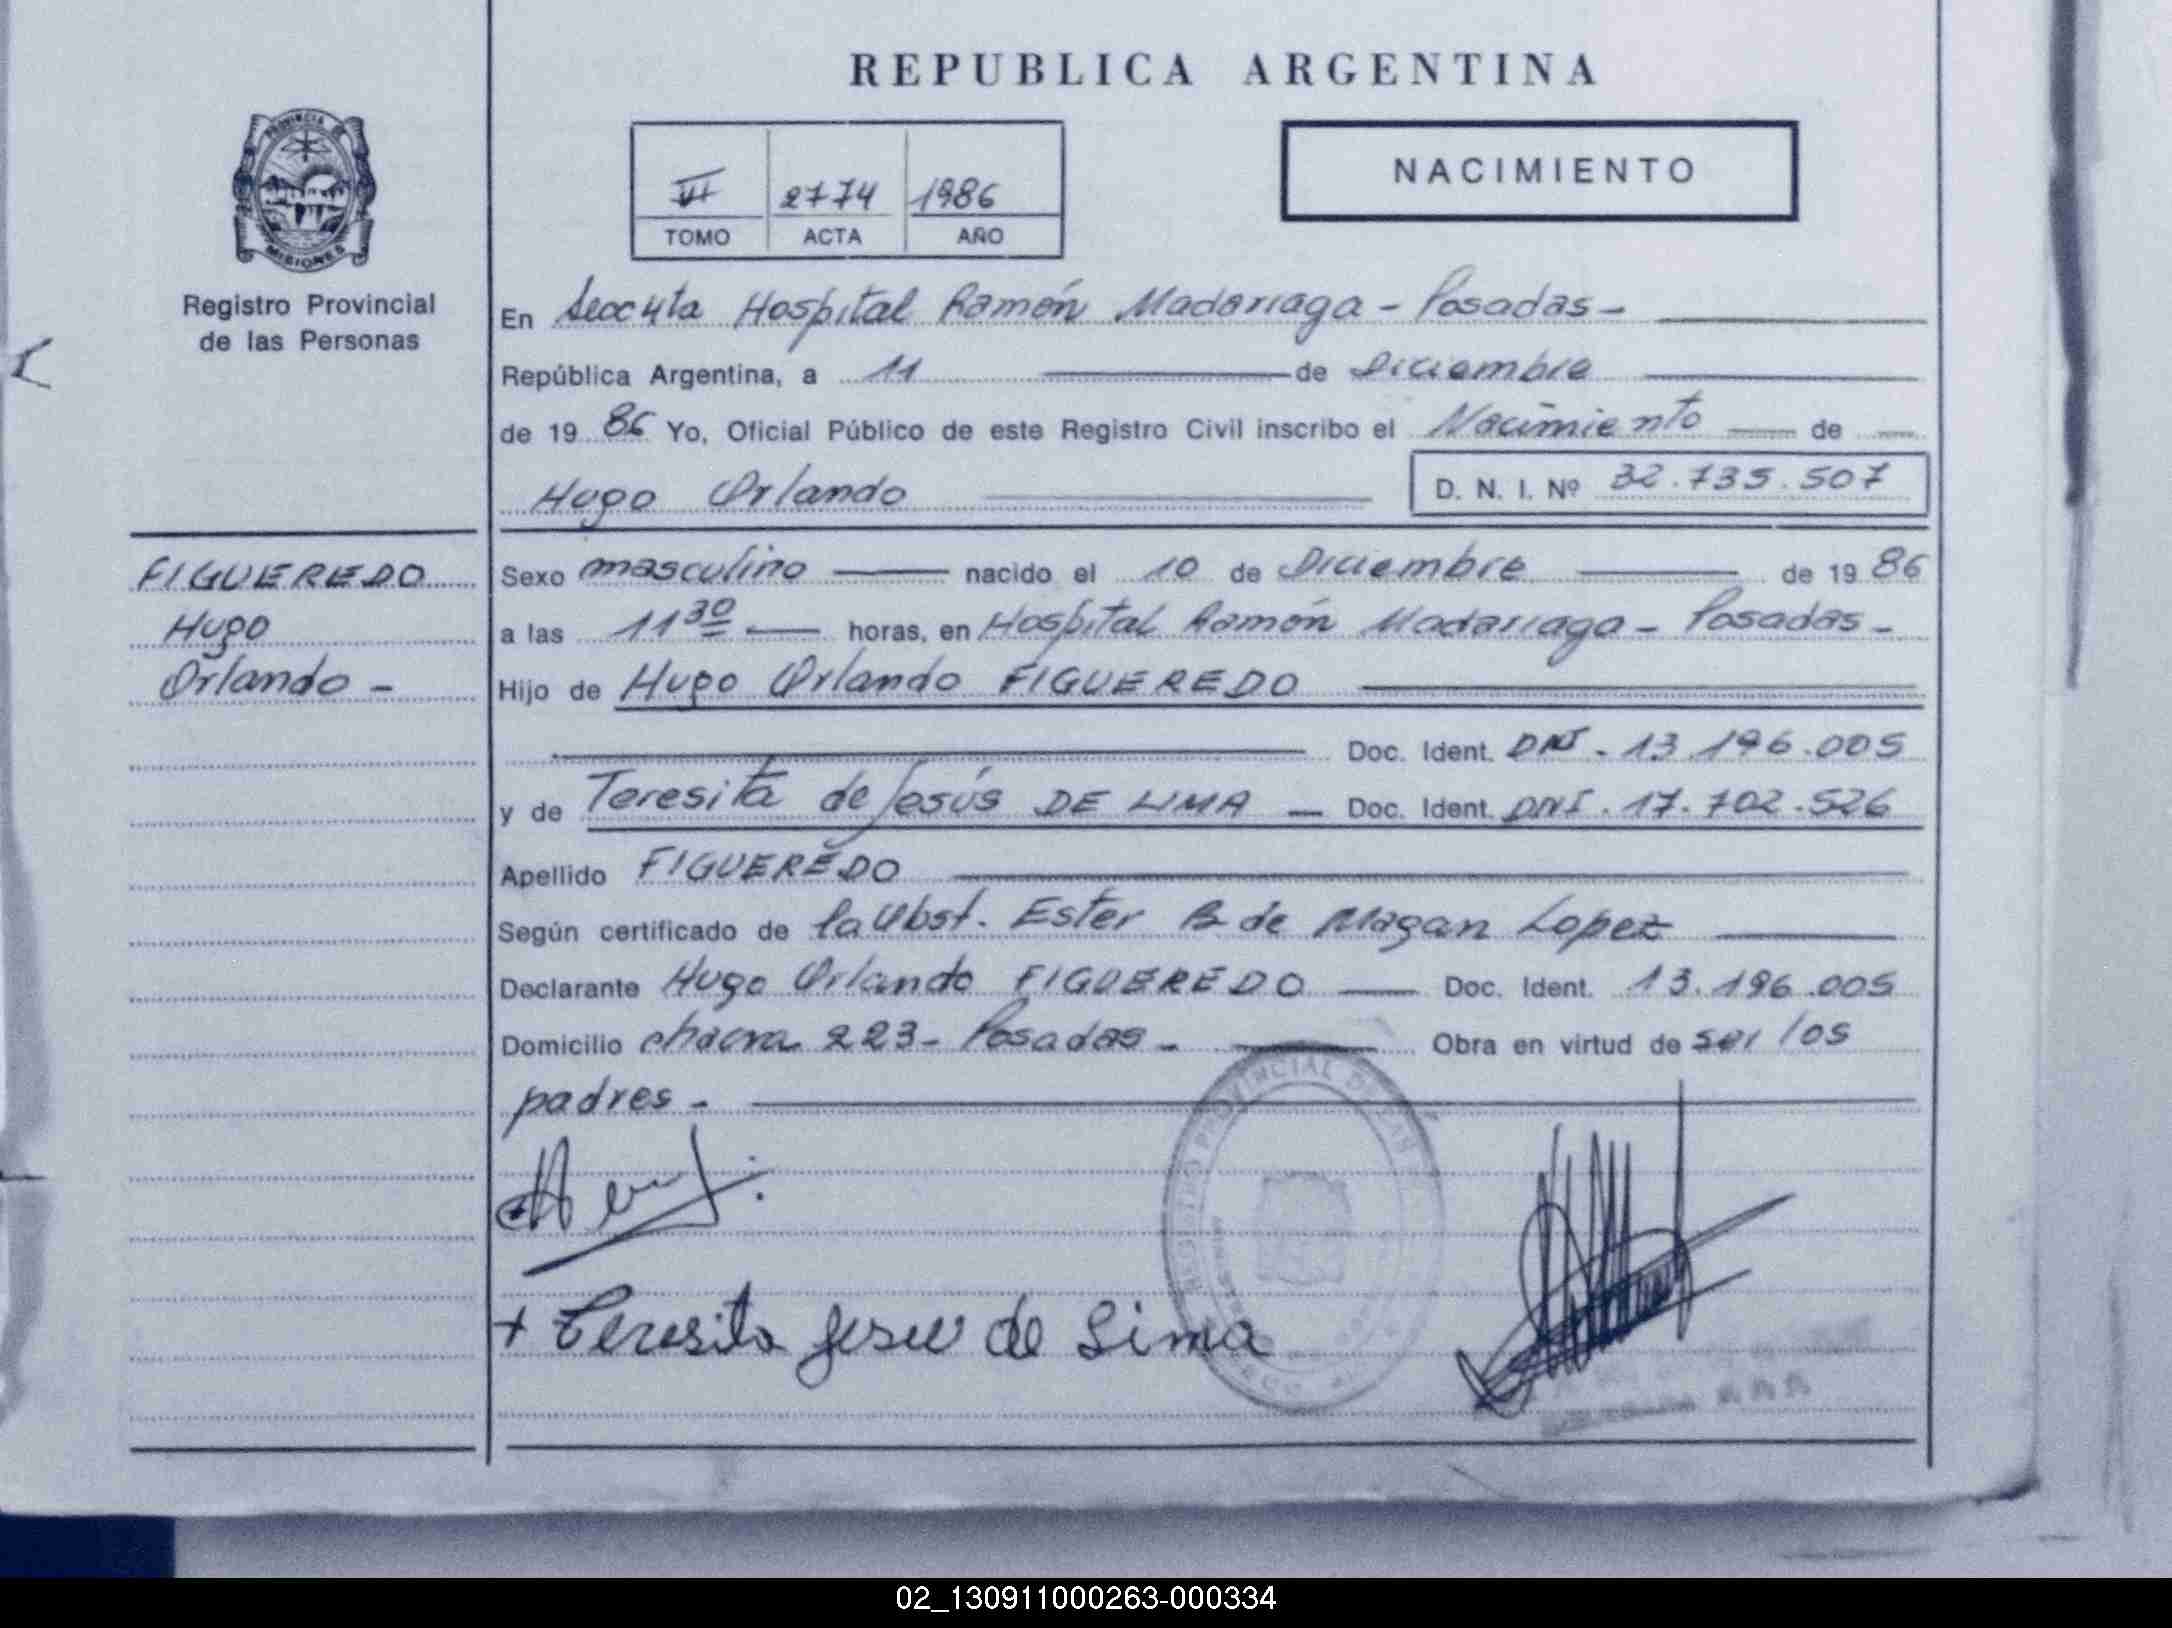 REPUBLICA ARGENTINA
PROVINCIA DE
MISIONES
Registro Provincial
de las Personas
VI 2774 1986
TOMO ACTA AÑO
NACIMIENTO
En Hospital Ramón Madariaga - Posadas -
República Argentina, a 11 de Diciembre
de 1986 Yo, Oficial Público de este Registro Civil inscribo el Nacimiento de
Hugo Orlando D. N. I. Nº 32.735.507
FIGUEREDO
Hugo
Orlando -
Sexo masculino nacido el 10 de Diciembre de 1986
a las 11 30 horas, en Hospital Ramón Madariaga - Posadas -
Hijo de Hugo Orlando FIGUEREDO
Doc. Ident. DNI - 13.196.005
y de Teresita de Jesús DE LIMA Doc. Ident. DNI. 17.702.526
Apellido FIGUEREDO
Según certificado de la Obst. Ester B de Magan Lopez
Declarante Hugo Orlando FIGUEREDO Doc. Ident. 13.196.005
Domicilio chacra 223 - Posadas - Obra en virtud de ser los
padres -
REGISTRO PROVINCIAL DE LAS
+ Teresita Jesu de Lima
02_130911000263-000334